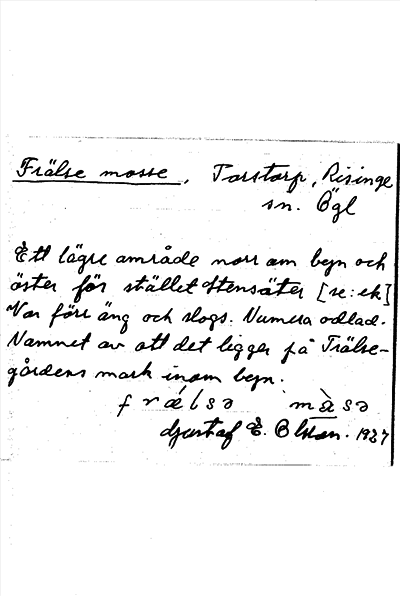 Frälse mosse, Torstorp, Risinge
sn. Ögl
Ett lägre område norr om byn och
öster för stället Stensäter [se: ek]
Var förr äng och slogs. Numera odlad.
Namnet av att det ligger på Frälse-
gårdens mark inom byn.
Gustaf E. Olsson. 1927